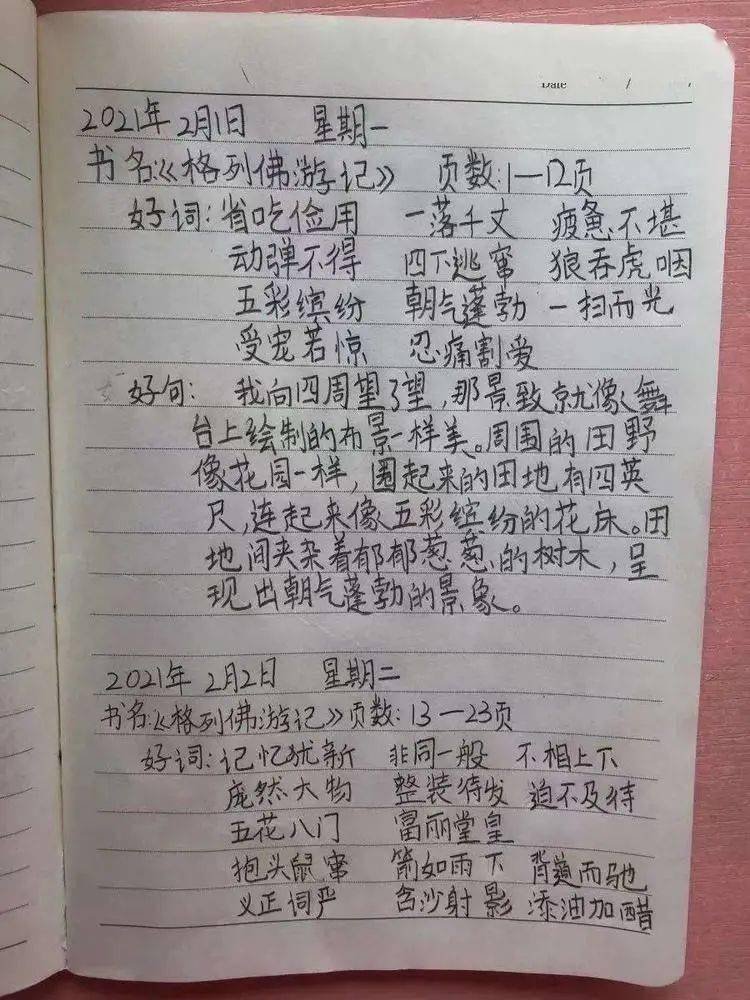 Date / /
2021年2月1日 星期一
书名:《格列佛游记》 页数:1—12页
好词:省吃俭用 一落千丈 疲惫不堪
动弹不得 四下逃窜 狼吞虎咽
五彩缤纷 朝气蓬勃 一扫而光
受宠若惊 忍痛割爱
好句: 我向四周望了望,那景致就像舞
台上绘制的布景一样美。周围的田野
像花园一样,圈起来的田地有四英
尺,连起来像五彩缤纷的花床。田
地间夹杂着郁郁葱葱的树木,呈
现出朝气蓬勃的景象。
2021年2月2日 星期二
书名:《格列佛游记》页数:13—23页
好词:记忆犹新 非同一般 不相上下
庞然大物 整装待发 迫不及待
五花八门 富丽堂皇
抱头鼠窜 箭如雨下 背道而驰
义正词严 含沙射影 添油加醋